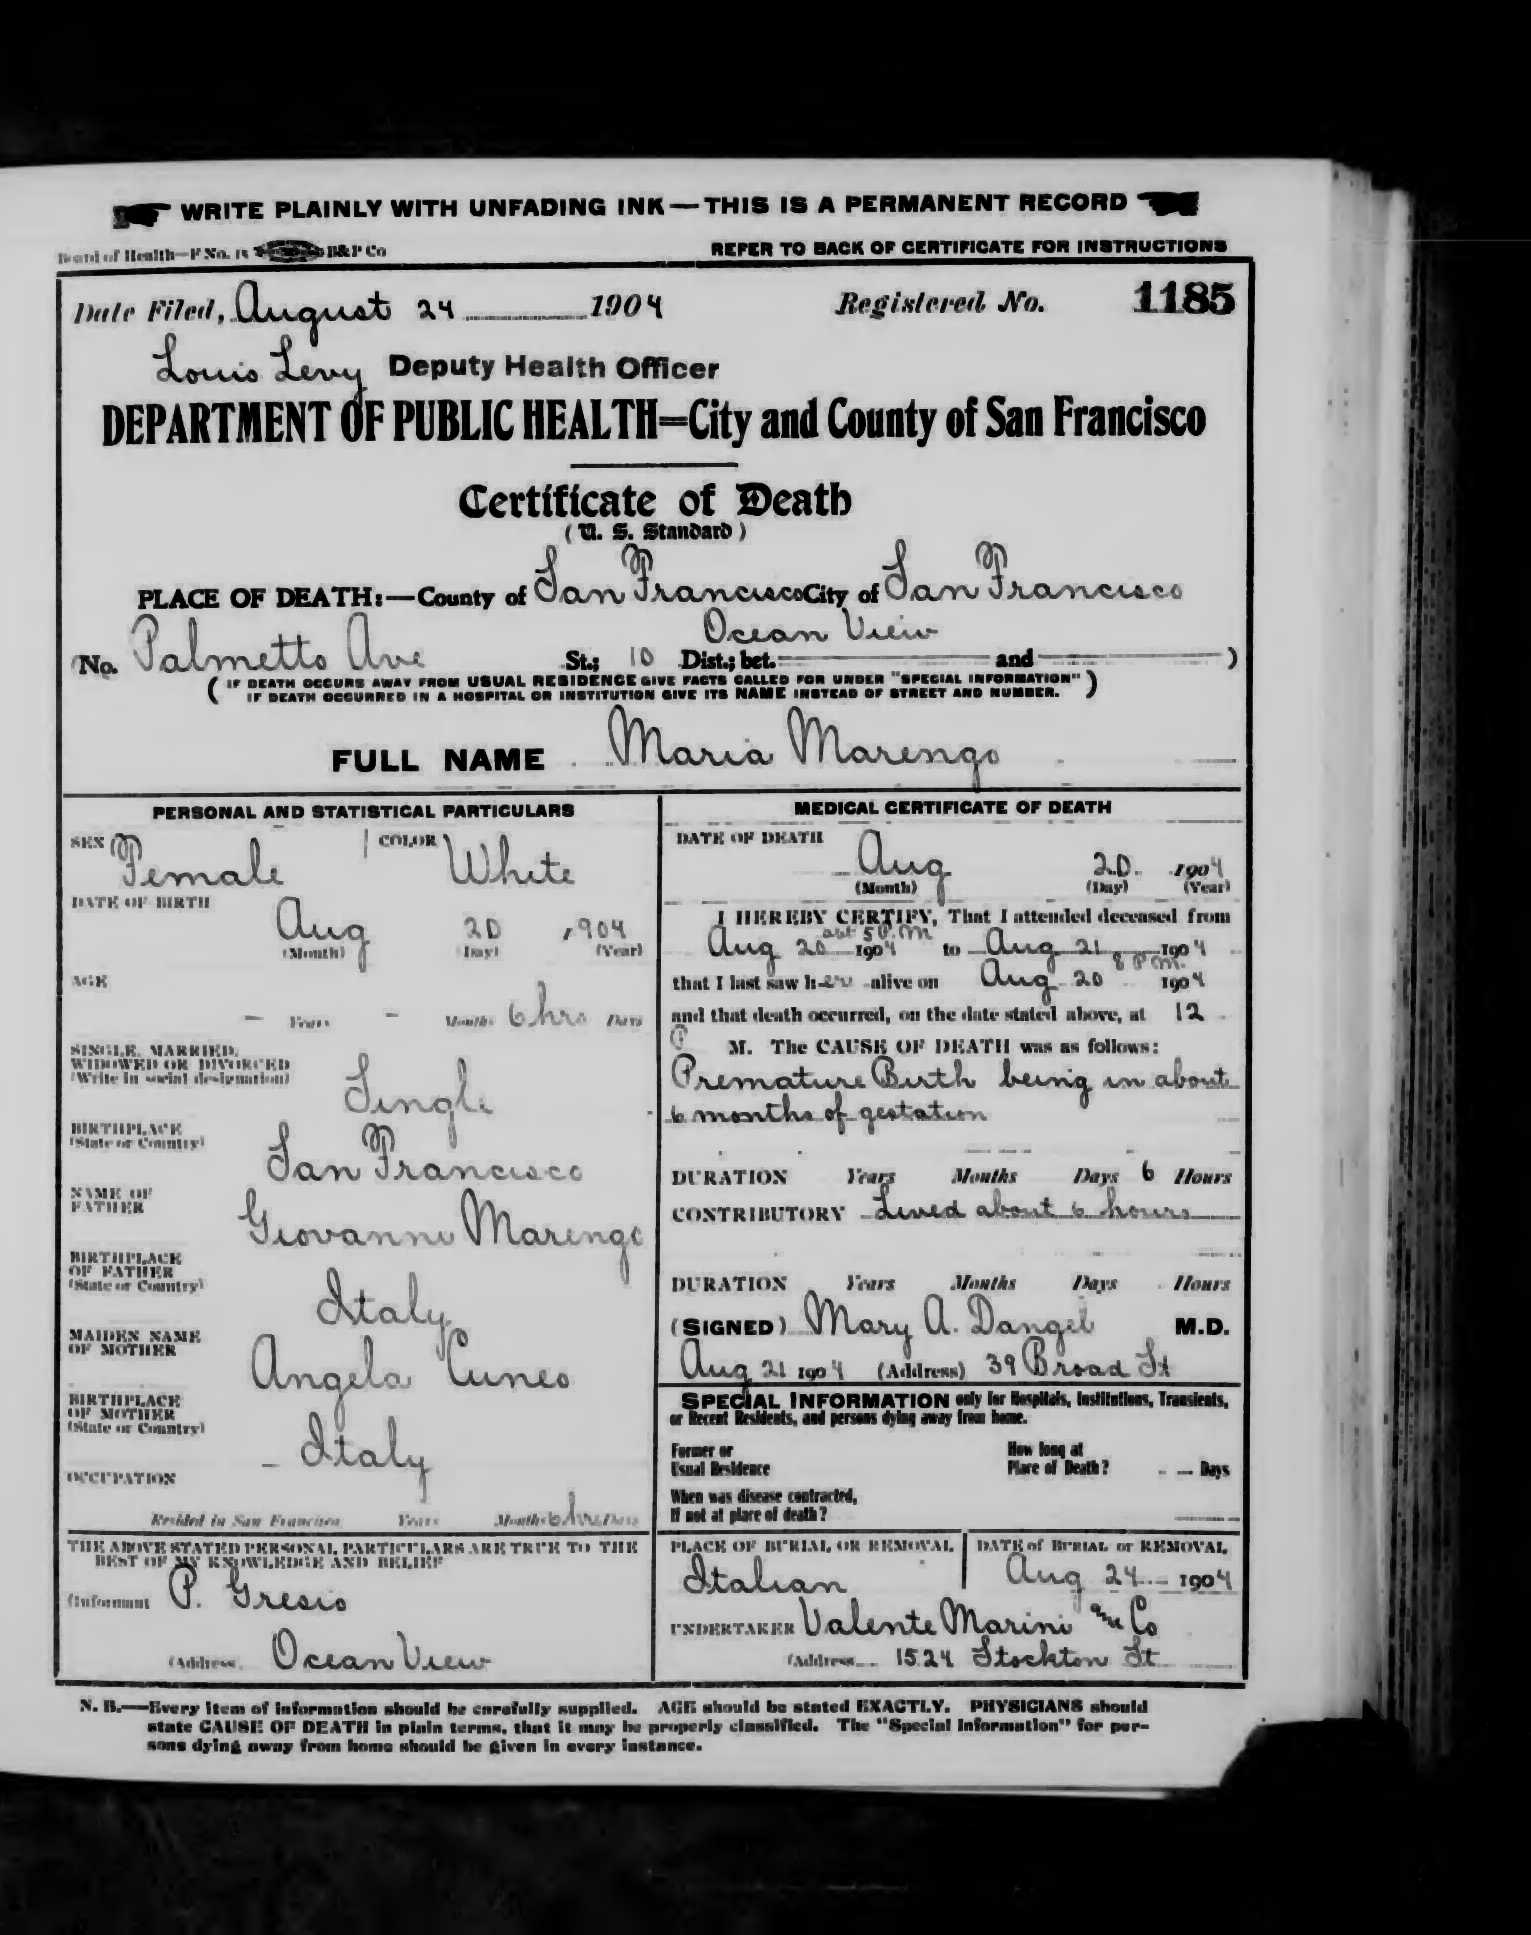 WRITE PLAINLY WITH UNFADING INK — THIS IS A PERMANENT RECORD
Board of Health—F No. 15 B&P Co REFER TO BACK OF CERTIFICATE FOR INSTRUCTIONS
Date Filed, August 24 1904 Registered No. 1185
Louis Levy Deputy Health Officer
DEPARTMENT OF PUBLIC HEALTH=City and County of San Francisco
Certificate of Death
(U. S. Standard)
PLACE OF DEATH:—County of San Francisco City of San Francisco
Ocean View
No. Palmetto Ave St.; 10 Dist.; bet. and )
( IF DEATH OCCURS AWAY FROM USUAL RESIDENCE GIVE FACTS CALLED FOR UNDER "SPECIAL INFORMATION" )
IF DEATH OCCURRED IN A HOSPITAL OR INSTITUTION GIVE ITS NAME INSTEAD OF STREET AND NUMBER.
FULL NAME Maria Marengo
PERSONAL AND STATISTICAL PARTICULARS
SEX Female COLOR White
DATE OF BIRTH
Aug 20 1904
(Month) (Day) (Year)
AGE
– Years – Months 6 hrs Days
SINGLE, MARRIED,
WIDOWED OR DIVORCED
(Write in social designation)
Single
BIRTHPLACE
(State or Country)
San Francisco
NAME OF
FATHER
Giovanni Marengo
BIRTHPLACE
OF FATHER
(State or Country)
Italy
MAIDEN NAME
OF MOTHER
Angela Cuneo
BIRTHPLACE
OF MOTHER
(State or Country)
Italy
OCCUPATION
Resided in San Francisco Years Months 6 hrs Days
THE ABOVE STATED PERSONAL PARTICULARS ARE TRUE TO THE
BEST OF MY KNOWLEDGE AND BELIEF
(Informant P. Gresio
(Address Ocean View
MEDICAL CERTIFICATE OF DEATH
DATE OF DEATH
Aug 20 1904
(Month) (Day) (Year)
I HEREBY CERTIFY, That I attended deceased from
abt 5 P.M
Aug 20 1904 to Aug 21 1904
8 P.M.
that I last saw her alive on Aug 20 1904
and that death occurred, on the date stated above, at 12
P M. The CAUSE OF DEATH was as follows:
Premature Birth being in about
6 months of gestation
DURATION Years Months Days 6 Hours
CONTRIBUTORY Lived about 6 hours
DURATION Years Months Days Hours
(SIGNED) Mary A. Dangel M.D.
Aug 21 1904 (Address) 39 Broad St
SPECIAL INFORMATION only for Hospitals, Institutions, Transients,
or Recent Residents, and persons dying away from home.
Former or How long at
Usual Residence Place of Death? Days
When was disease contracted,
If not at place of death?
PLACE OF BURIAL OR REMOVAL DATE of BURIAL or REMOVAL
Italian Aug 24 1904
UNDERTAKER Valente Marini and Co
(Address 1524 Stockton St
N. B.—Every item of information should be carefully supplied. AGE should be stated EXACTLY. PHYSICIANS should
state CAUSE OF DEATH in plain terms, that it may be properly classified. The "Special Information" for per-
sons dying away from home should be given in every instance.